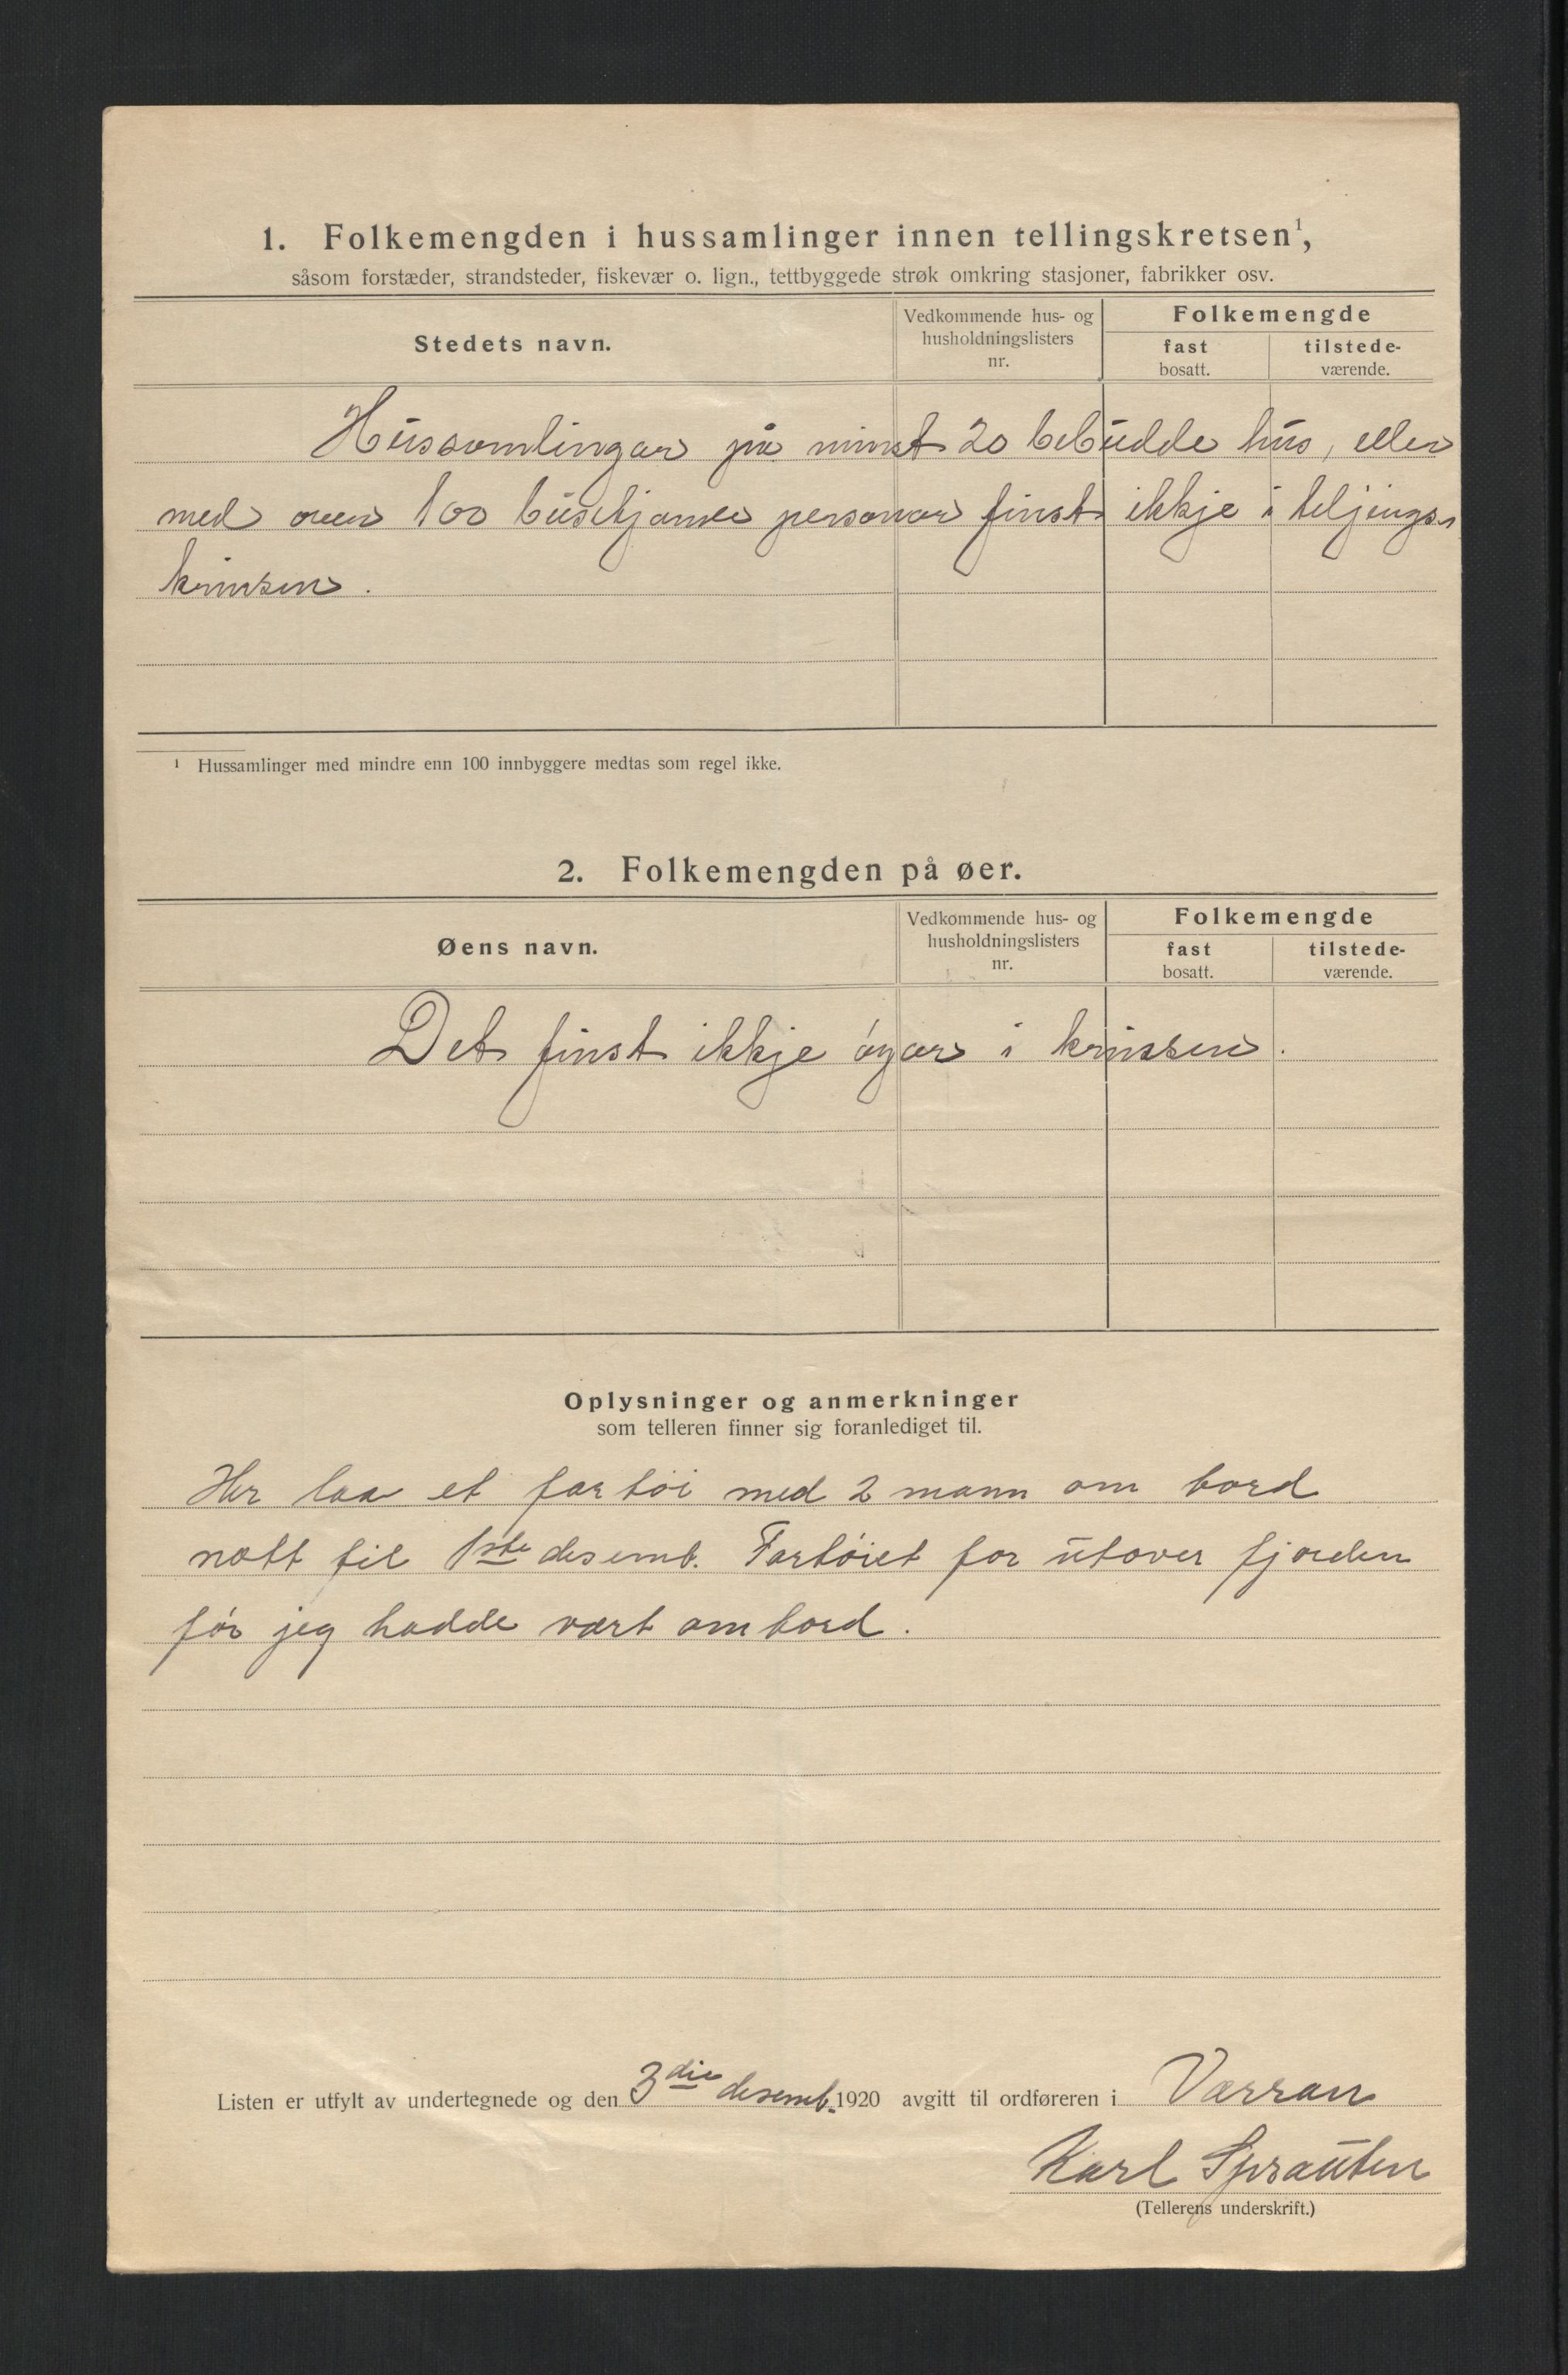 1. Folkemengden i hussamlinger innen tellingskretsen¹,
såsom forstæder, strandsteder, fiskevær o. lign., tettbyggede strøk omkring stasjoner, fabrikker osv.
Stedets navn.
Vedkommende hus- og
husholdningslisters
nr.
Folkemengde
fast
bosatt.
tilstede-
værende.
Hussamlingar på minst 20 bebudde hus, eller
med over 100 busitjande personar finst ikkje i teljings-
krinsen.
¹ Hussamlinger med mindre enn 100 innbyggere medtas som regel ikke.
2. Folkemengden på øer.
Øens navn.
Vedkommende hus- og
husholdningslisters
nr.
Folkemengde
fast
bosatt.
tilstede-
værende.
Det finst ikkje øyar i krinsen.
Oplysninger og anmerkninger
som telleren finner sig foranlediget til.
Her laa et fartöi med 2 mann om bord
natt til 1ste desemb. Fartöiet for utover fjorden
för jeg hadde vært ombord.
Listen er utfylt av undertegnede og den 3die desemb. 1920 avgitt til ordføreren i Værran
Karl Sprauten
(Tellerens underskrift.)